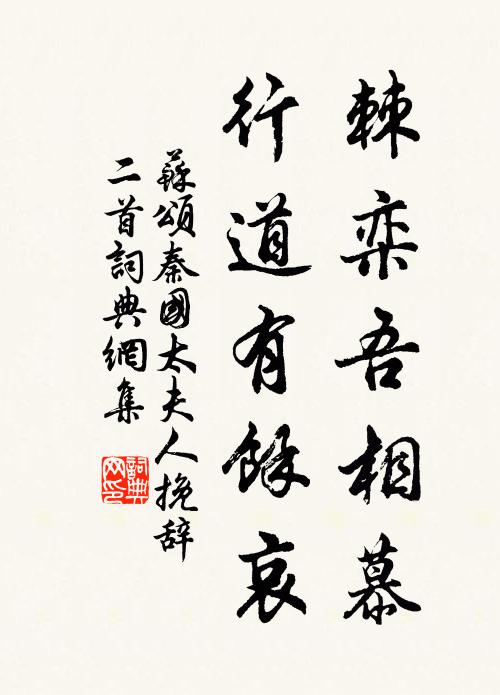 棘栾吾相慕
行道有餘哀
蘇頌秦國太夫人挽辞
二首詞典網集
詞典
网印